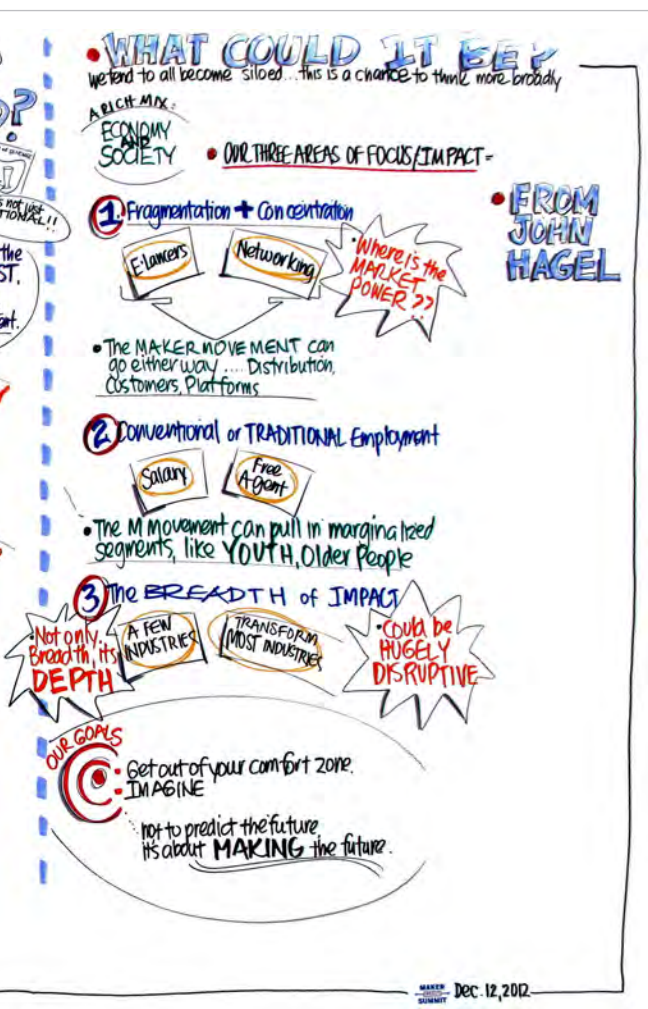 • WHAT COULD IT BE?
we tend to all become siloed...this is a chance to think more broadly
A RICH MIX:
ECONOMY
AND
SOCIETY
• OUR THREE AREAS OF FOCUS/IMPACT=
• FROM
JOHN
HAGEL
1. Fragmentation + Concentration
E-Lancers
Networking
• Where is the
MARKET
POWER??
• The MAKER MOVEMENT can
go either way .... Distribution,
Customers, Platforms
2 Conventional or TRADITIONAL Employment
Salary
Free
Agent
• The M Movement can pull in marginalized
segments, like YOUTH, Older People
3 The BREADTH of IMPACT
• Not only
Breadth, its
DEPTH
A FEW
INDUSTRIES
TRANSFORM
MOST INDUSTRIES
• Could be
HUGELY
DISRUPTIVE
OUR GOALS
• Get out of your comfort zone.
• IMAGINE
not to predict the future
it's about MAKING the future.
?
not just
TIONAL!!
the
ST,
MAKER
SUMMIT
Dec. 12, 2012